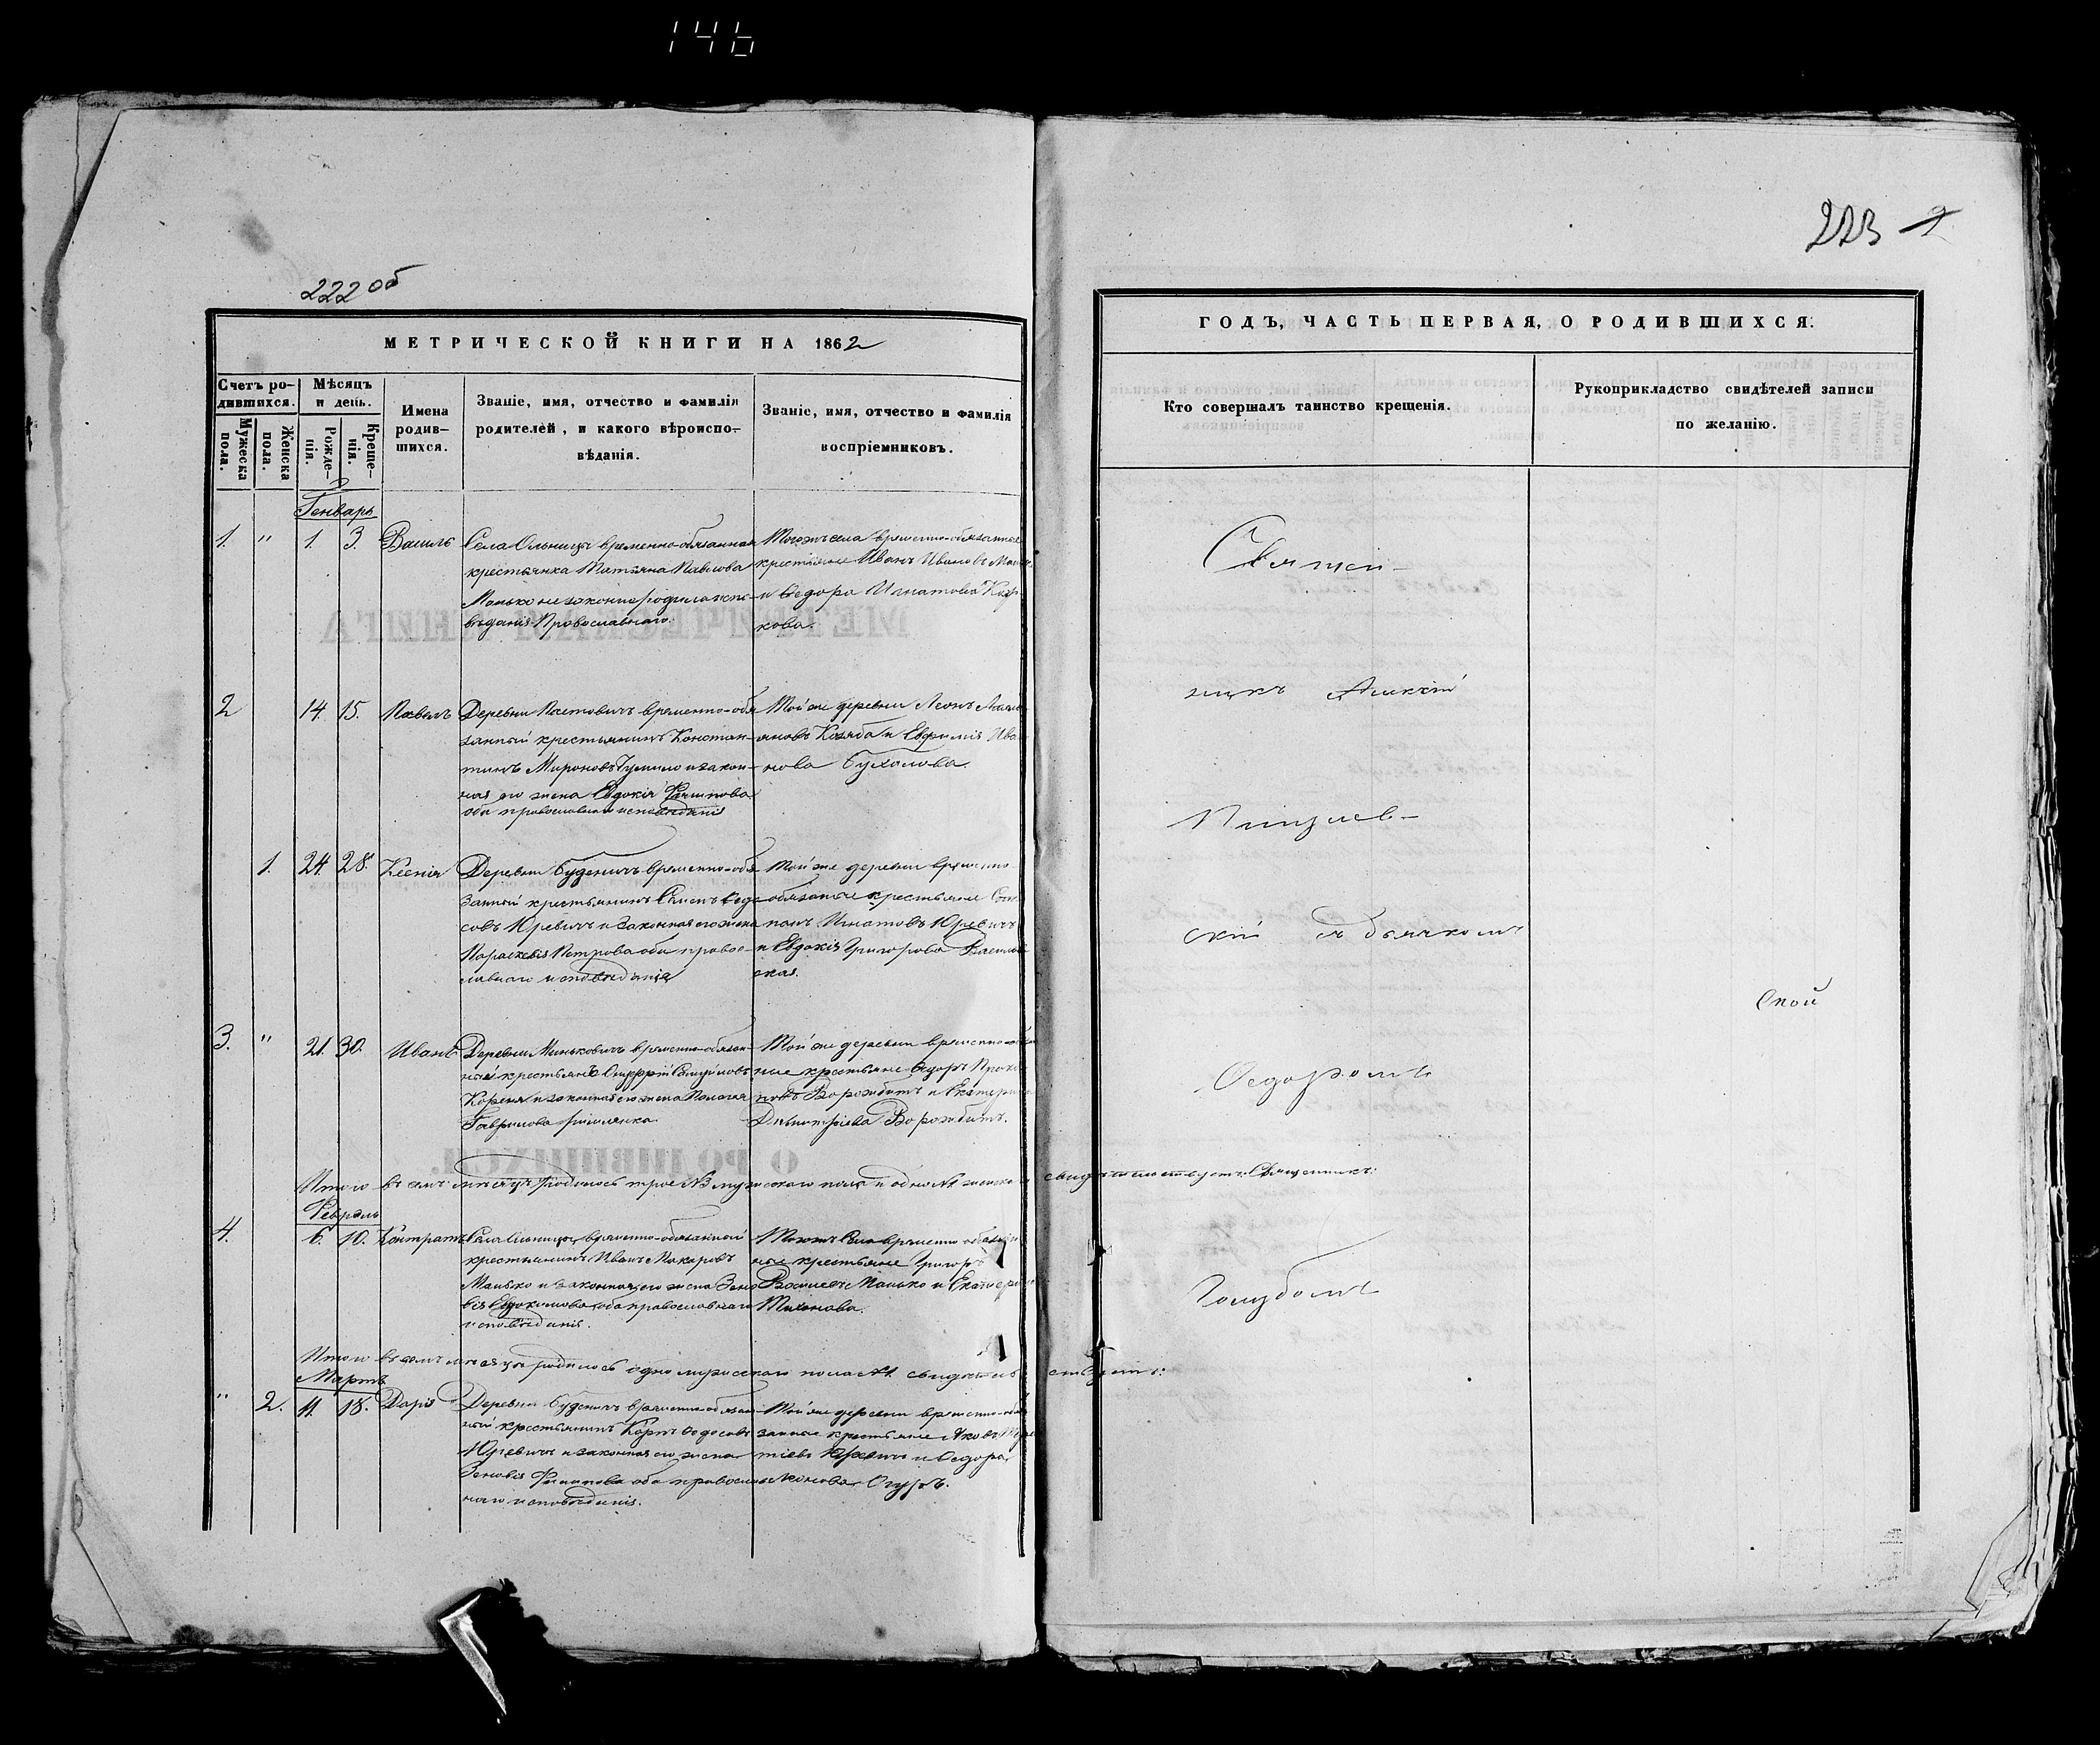 146
222 об
МЕТРИЧЕСКОЙ КНИГИ НА 1862
Счетъ ро-
дившихся.
Мужеска
пола.
Женска
пола.
Мѣсяцъ
и день.
Рожде-
нія.
Креще-
нія.
Имена
родив-
шихся.
Званіе, имя, отчество и фамилія
родителей, и какого вѣроиспо-
вѣданія.
Званіе, имя, отчество и фамилія
воспріемниковъ.
Генварь
1. " 1. 3. Василь
Села Ольницы временно-обязанная
крестьянка Татьяна Павлова
Манько незаконнород
вѣданія Православнаго.
Тогожъ села временно-обязанные
крестьяне Иванъ Ивановъ
и Ѳедора Игнатова
кова.
2 14. 15. Павелъ
Деревни временно-обя
занный крестьянинъ Констан-
тинъ Мироновъ и закон-
ная его жена Евдокія
оба православнаго исповѣданія
Той же деревни Леонъ
Козяба и Евфимія Ива
нова Бухалова.
1. 24. 28. Ксенія
Деревни Буденичъ временно-обя
занный крестьянинъ Ѳедо
совъ Юревичъ и законная его жена
Параскевія Петрова оба правос-
лавнаго исповѣданія
Той же деревни временно
обязаные крестьяне
Игнатовъ Юревичъ
и Евдокія Григорова
ская.
3. " 21. 30. Иванъ
Деревни Миньковичъ временно-обязан-
ный крестьянъ Онуфрій Самуйловъ
Кореня и законная его жена Пелагія
Гаврилова римлянка.
Той же деревни временно
ные крестьяне Ѳедоръ Прохо
ровъ Ворожбитъ и Екатерина
Дмитріева Ворожбитъ.
Итого въ семъ мѣсяцѣ родилось трое №3 мужескаго пола и одно №1 женска свидѣтельствуетъ: Священникъ:
Февраль
4. 6. 10. Контратъ
Села Ольницы временно-обязанный
крестьянинъ Иванъ Макаровъ
Манько и законная его жена Зено
вія Евдокимова оба православнаго
исповѣданія.
Тогожъ Села временно обязан
ные крестьяне Григоръ
Васильевъ Манько и Екатерина
Тихонова.
Итого въ семъ мѣсяцѣ родилось одно мужескаго пола №1. свидѣтельствуетъ:
Мартъ
" 2. 11. 18. Дарія
Деревни Буденичъ временно-обязан
ный крестьянинъ Карпъ Ѳедосовъ
Юревичъ и законная его жена
Зеновія Филипова оба православ
наго исповѣданія.
Той же деревни временно-обя
занные крестьяне Яковъ
тіевъ Юревичъ и Ѳедора
Огуръ.
223
2
ГОДЪ, ЧАСТЬ ПЕРВАЯ, О РОДИВШИХСЯ.
Кто совершалъ таинство крещенія.
Рукоприкладство свидѣтелей записи
по желанію.
Священ-
никъ
скій съ дьячкомъ
Ѳедоромъ
Голубомъ